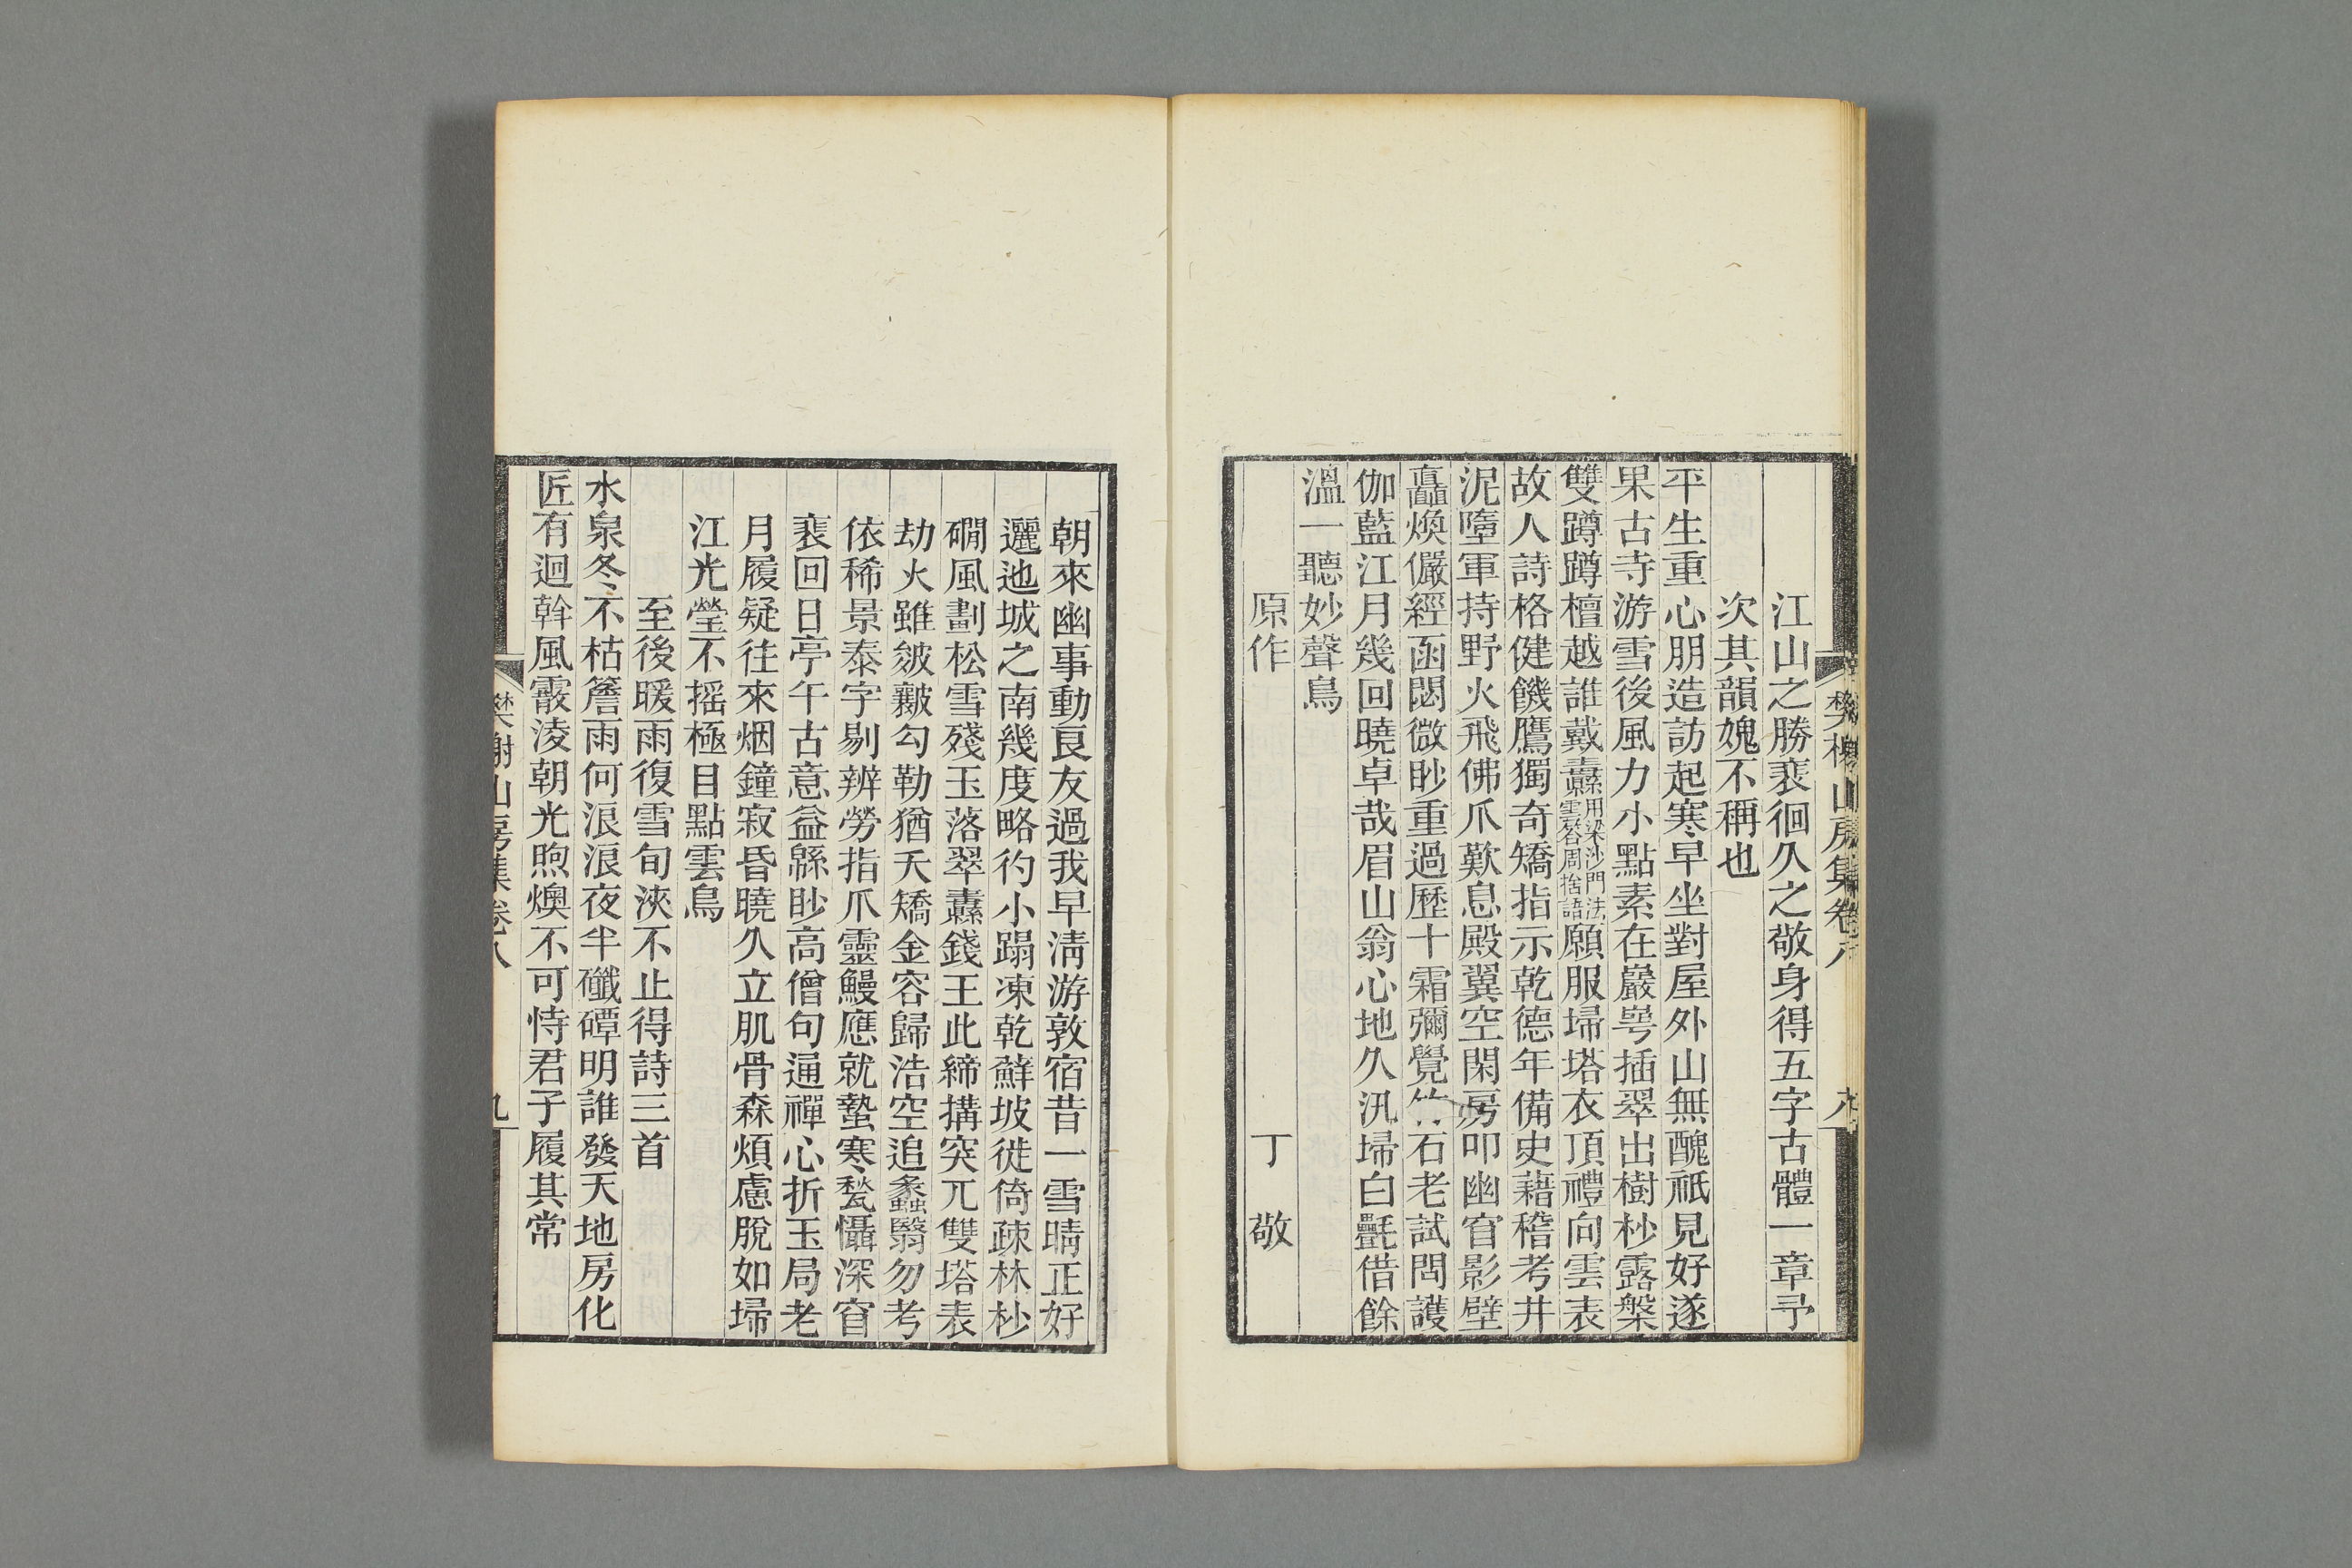 江山之勝裵徊久之敬身得五字古體一章予
次其韻媿不稱也
平生重心朋造訪起寒早坐對屋外山無醜祇見好遂
果古寺游雪後風力小點素在巖㟧插翠出樹杪露槃
雙蹲蹲檀越誰戴纛用梁沙門法雲答周捨語願服埽塔衣頂禮向雲表
故人詩格健饑鷹獨奇矯指示乾德年備史藉稽考井
泥墮軍持野火飛佛爪歎息殿翼空閑房叩幽窅影壁
矗煥儼經函閟微眇重過歷十霜彌覺竹石老試問護
伽藍江月幾回曉卓哉眉山翁心地久汛埽白㲲借餘
溫一聽妙聲鳥
原作 丁敬
朝來幽事動良友過我早清游敦宿昔一雪晴正好
邐迆城之南幾度略彴小蹋凍乾蘚坡徙倚疎林杪
磵風劃松雪殘玉落翠纛錢王此締搆突兀雙塔表
劫火雖皴皾勾勒猶夭矯金容歸浩空追蠡翳勿考
依稀景泰字剔辨勞指爪靈鰻應就蟄寒甃懾深窅
裵回日亭午古意益緜眇高僧句逼禪心折玉局老
月履疑往來烟鐘寂昏曉久立肌骨森煩慮脫如埽
江光瑩不搖極目點雲鳥
至後暖雨復雪旬浹不止得詩三首
水泉冬不枯簷雨何浪浪夜半礮磹明誰發天地房化
匠有迴斡風霰淩朝光煦燠不可恃君子履其常
樊榭山房集卷八 九